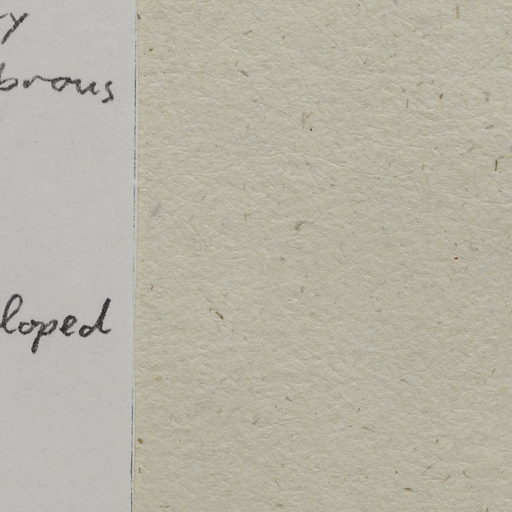 ry
brous
loped